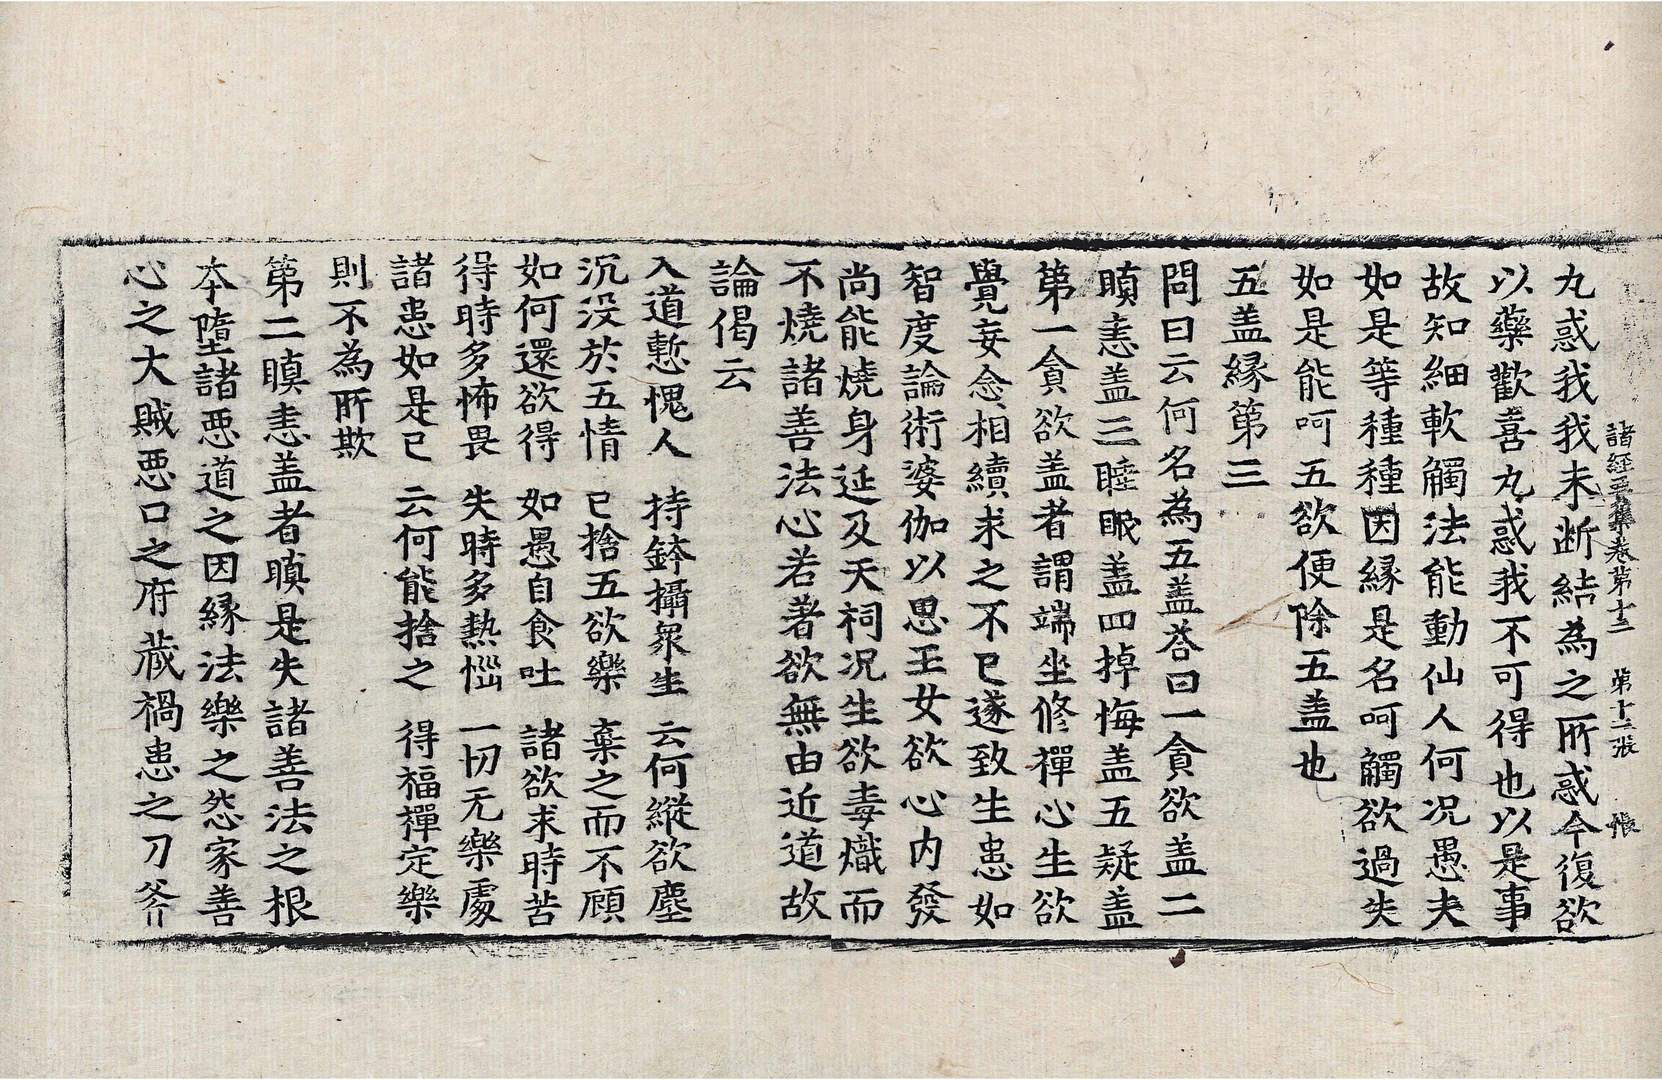 諸經要集卷第十二　第十二張　帳
丸惑我我未断結為之所惑今復欲
以藥歡喜丸惑我不可得也以是事
故知細軟觸法能動仙人何况愚夫
如是等種種因緣是名呵觸欲過失
如是能呵五欲便除五盖也
五盖緣第三
問曰云何名為五盖荅曰一貪欲盖二
瞋恚盖三睡眠盖四掉悔盖五疑盖
苐一貪欲盖者謂端坐修禪心生欲
覺妄念相續求之不已遂致生患如
智度論術婆伽以思王女欲心內發
尚能燒身延及天祠况生欲毒熾而
不燒諸善法心若著欲無由近道故
論偈云
入道慙愧人　持鉢攝衆生　云何縱欲塵
沉没於五情　已捨五欲樂　棄之而不顧
如何還欲得　如愚自食吐　諸欲求時苦
得時多怖畏　失時多熱惱　一切无樂處
諸患如是已　云何能捨之　得福禪定樂
則不為所欺
苐二瞋恚盖者瞋是失諸善法之根
本墮諸惡道之因緣法樂之怨家善
心之大賊惡口之府藏禍患之刀斧